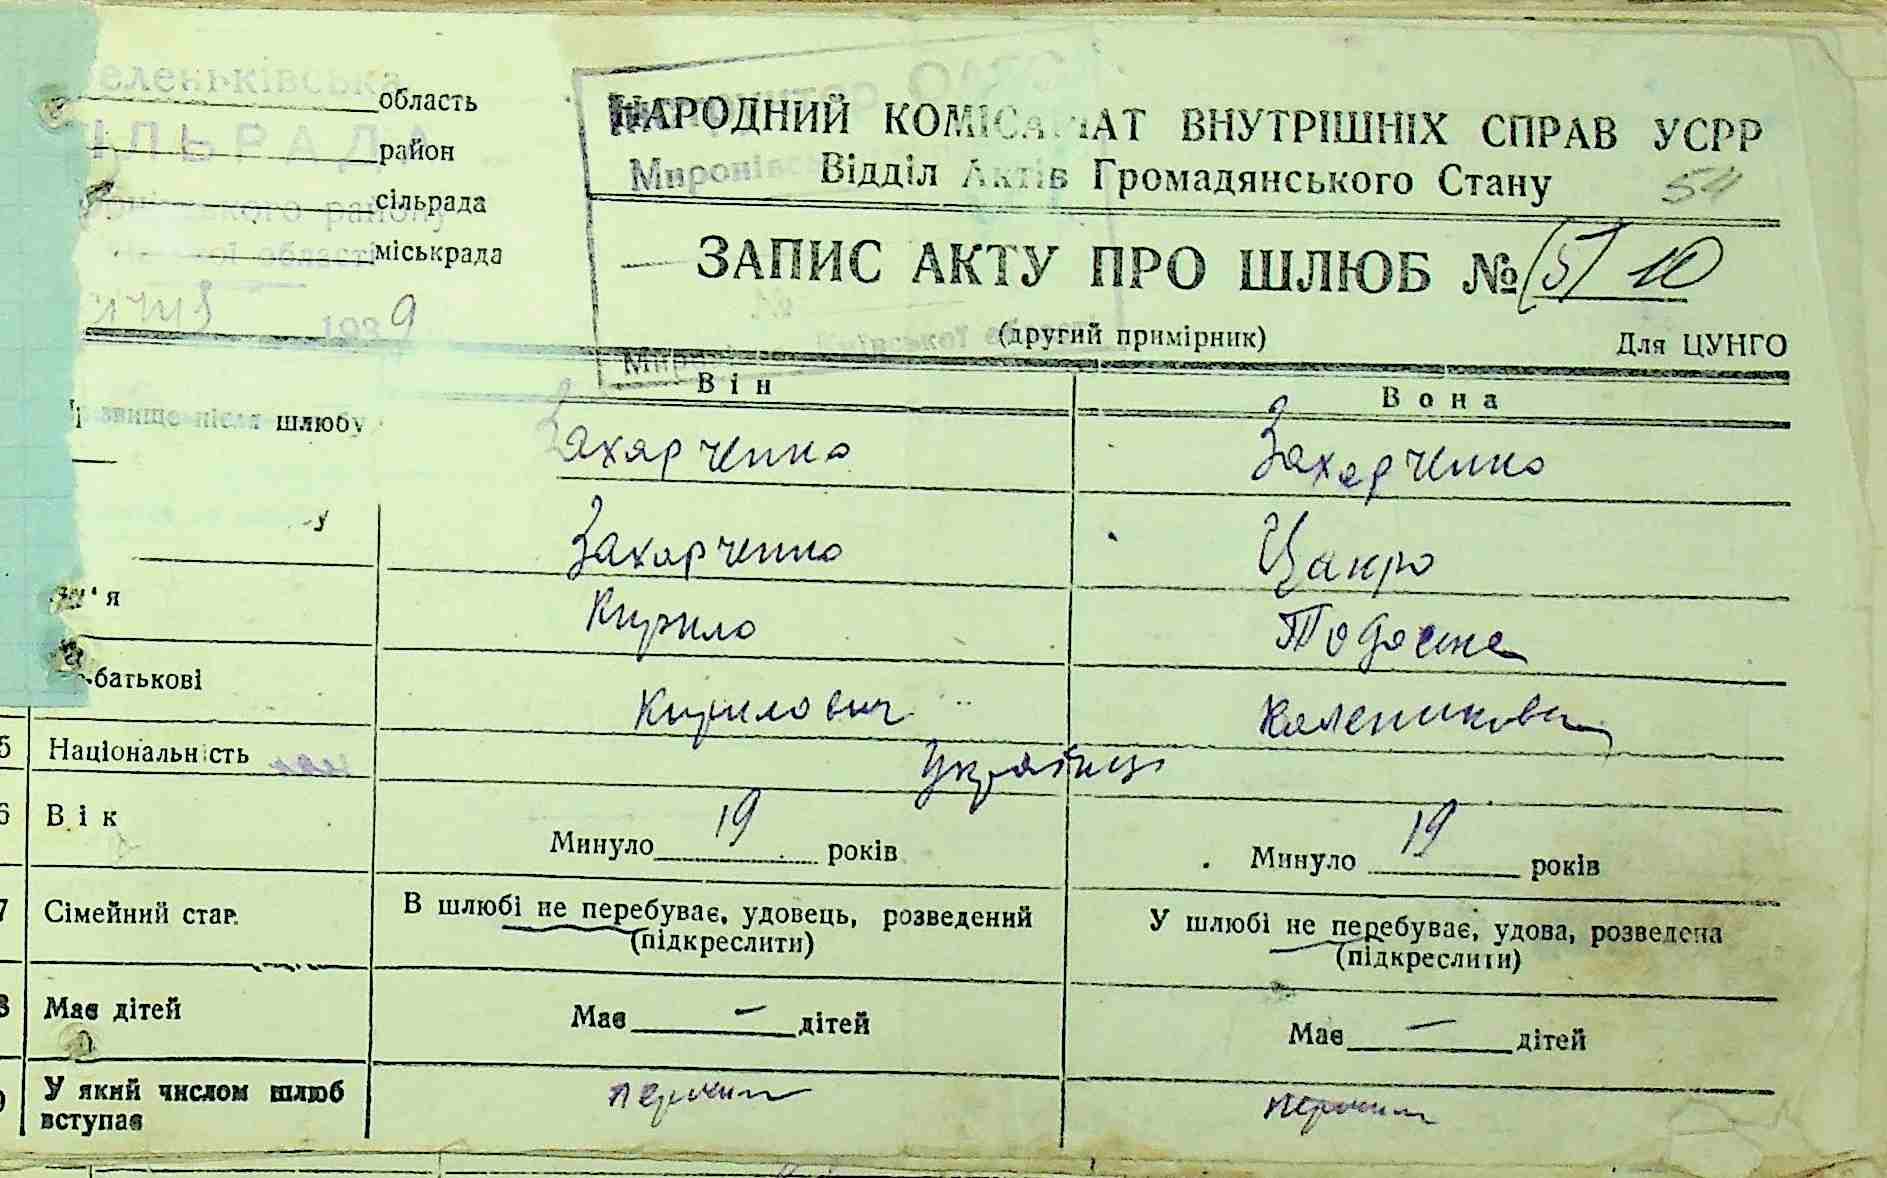 еленьківська
область
ІЛЬРАДА
район
сільрада
району
області
міськрада
193 9
НАРОДНИЙ КОМІСАРІАТ ВНУТРІШНІХ СПРАВ УСРР
Відділ Актів Громадянського Стану 54
ЗАПИС АКТУ ПРО ШЛЮБ № (5) 10
(другий примірник) Для ЦУНГО
№
Київської області
Він Вона
звище після шлюбу Захарченко Захарченко
у Захарченко Цакро
м'я Кирило Тодоска
-батькові Кирилович Калениковна
5 Національність Українці
6 Вік Минуло 19 років Минуло 19 років
7 Сімейний стан В шлюбі не перебуває, удовець, розведений (підкреслити) У шлюбі не перебуває, удова, розведена (підкреслити)
8 Має дітей Має — дітей Має — дітей
9 У який числом шлюб вступає первий первий